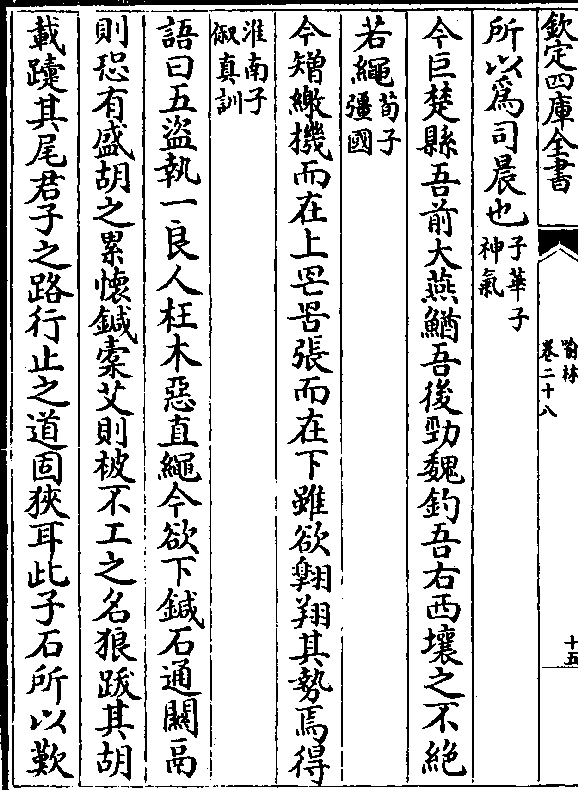 欽定四庫全書
喻林
卷二十八
十五
所以爲司晨也子華子
神氣
今巨楚縣吾前大燕鰌吾後勁魏鈎吾右西壤之不絶
若繩荀子
彊國
今矰繳機而在上罔罟張而在下雖欲翱翔其勢焉得
淮南子
俶真訓
語曰五盜執一良人枉木惡直繩今欲下鍼石通關鬲
則恐有盛胡之累懷鍼橐艾則被不工之名狼跋其胡
載躓其尾君子之路行止之道固狹耳此子石所以歎